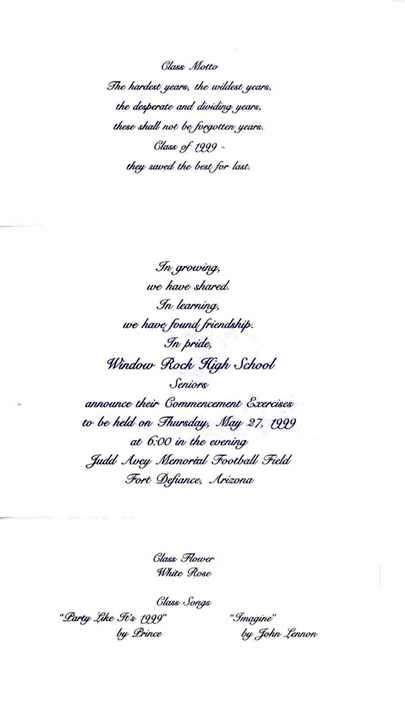 Class Motto
The hardest years, the wildest years,
the desperate and dividing years,
these shall not be forgotten years.
Class of 1999 -
they saved the best for last.
In growing,
we have shared.
In learning,
we have found friendship.
In pride,
Window Rock High School
Seniors
announce their Commencement Exercises
to be held on Thursday, May 27, 1999
at 6:00 in the evening
Judd Avey Memorial Football Field
Fort Defiance, Arizona
Class Flower
White Rose
Class Songs
"Party Like It's 1999" "Imagine"
by Prince by John Lennon